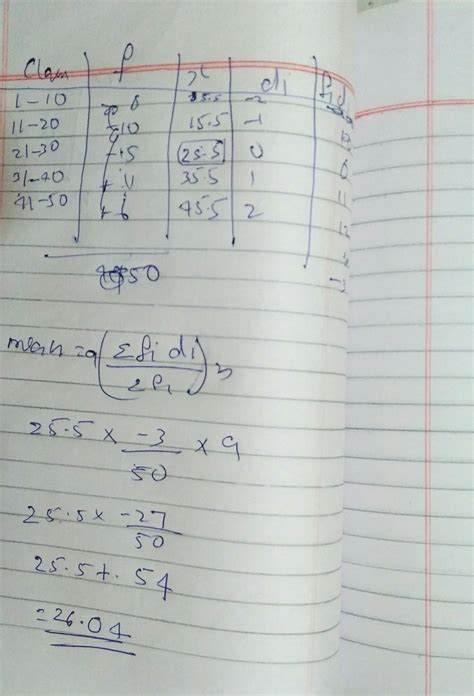 Class f x di fidi
1-10 8 5.5 -2
11-20 10 15.5 -1
21-30 15 25.5 0 0
31-40 11 35.5 1 11
41-50 6 45.5 2 12
50 -3
mean = a(Σfi di / Σfi)
25.5 × -3/50 × 9
25.5 × -27/50
25.5 + .54
= 26.04